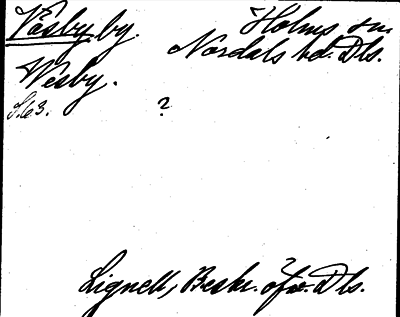 Väsby by. Holms sn.
Nordals hd. Dls.
Wesby.
S. 63. ?
Lignell, Beskr. öfv. Dls.